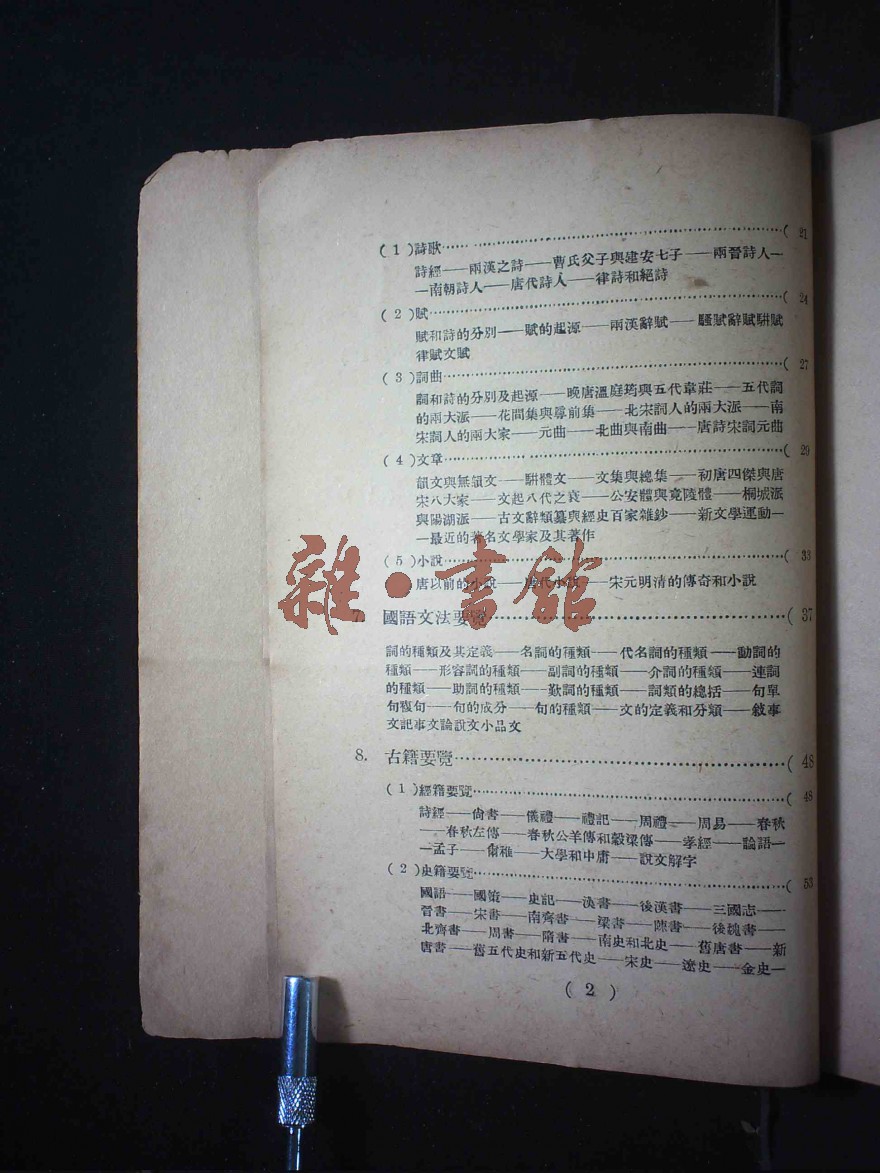 (1)詩歌……………………………………( 21
詩經——兩漢之詩——曹氏父子與建安七子——兩晉詩人—
—南朝詩人——唐代詩人——律詩和絕詩
(2)賦……………………………………( 24
賦和詩的分別——賦的起源——兩漢辭賦——騷賦辭賦駢賦
律賦文賦
(3)詞曲……………………………………( 27
詞和詩的分別及起源——晚唐溫庭筠與五代韋莊——五代詞
的兩大派——花間集與尊前集——北宋詞人的兩大派——南
宋詞人的兩大家——元曲——北曲與南曲——唐詩宋詞元曲
(4)文章……………………………………( 29
韻文與無韻文——駢體文——文集與總集——初唐四傑與唐
宋八大家——文起八代之衰——公安體與竟陵體——桐城派
與陽湖派——古文辭類纂與經史百家雜鈔——新文學運動—
—最近的著名文學家及其著作
(5)小說……………………………………( 33
唐以前的小說——唐代小說——宋元明清的傳奇和小說
雜·書館
7. 國語文法要覽……………………………………( 37
詞的種類及其定義——名詞的種類——代名詞的種類——動詞的
種類——形容詞的種類——副詞的種類——介詞的種類——連詞
的種類——助詞的種類——歎詞的種類——詞類的總括——句單
句複句——句的成分——句的種類——文的定義和分類——敍事
文記事文論說文小品文
8. 古籍要覽……………………………………( 48
(1)經籍要覽……………………………………( 48
詩經——尙書——儀禮——禮記——周禮——周易——春秋
——春秋左傳——春秋公羊傳和穀梁傳——孝經——論語—
—孟子——爾雅——大學和中庸——說文解字
(2)史籍要覽……………………………………( 53
國語——國策——史記——漢書——後漢書——三國志——
晉書——宋書——南齊書——梁書——陳書——後魏書——
北齊書——周書——隋書——南史和北史——舊唐書——新
唐書——舊五代史和新五代史——宋史——遼史——金史—
( 2 )